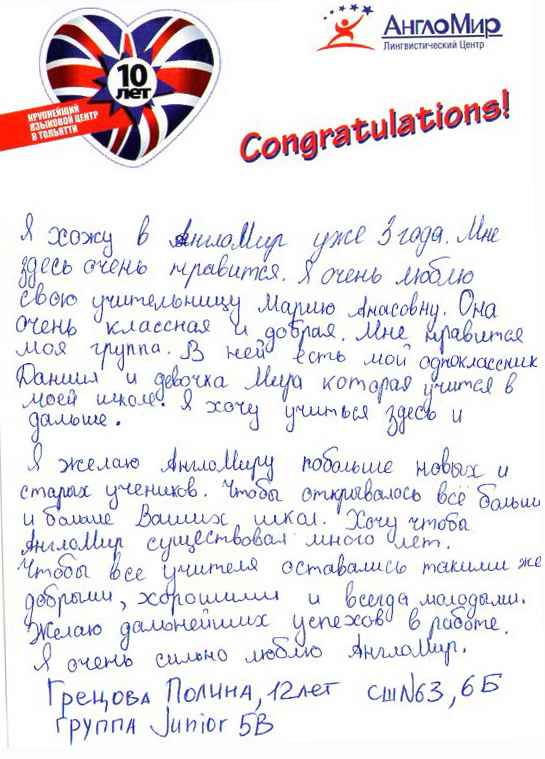 10
ЛЕТ
КРУПНЕЙШИЙ
ЯЗЫКОВОЙ ЦЕНТР
В ТОЛЬЯТТИ
АнглоМир
Лингвистический Центр
Congratulations!
Я хожу в АнглоМир уже 3 года. Мне
здесь очень нравится. Я очень люблю
свою учительницу Марию Анасовну. Она
очень классная и добрая. Мне нравится
моя группа. В ней есть мой одноклассник
Даниил и девочка Мира которая учится в
моей школе. Я хочу учиться здесь и
дальше.
Я желаю АнглоМиру побольше новых и
старых учеников. Чтобы открывалось всё больше
и больше Ваших школ. Хочу чтобы
АнглоМир существовал много лет.
Чтобы все учителя оставались такими же
добрыми, хорошими и всегда молодыми.
Желаю дальнейших успехов в работе.
Я очень сильно люблю АнглоМир.
Грецова Полина, 12 лет сш№63, 6 Б
группа Junior 5B